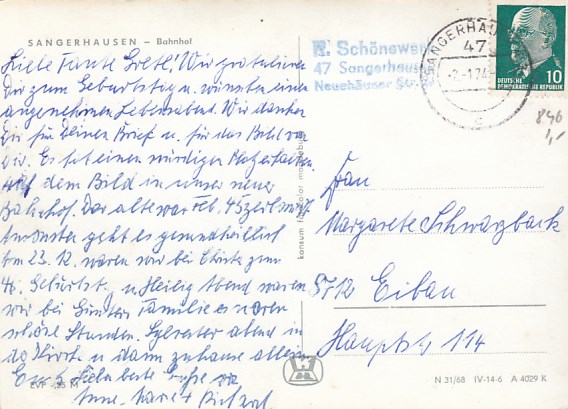 SANGERHAUSEN – Bahnhof
Liebe Tante Grete! Wir gratulieren
dir zum Geburtstag u. wünschen einen
angenehmen Lebensabend. Wir danken
dir für Deinen Brief u. für das Bild von
dir. Es hat einen würdigen Platz erhalten.
Auf dem Bild in unser neuer
Bahnhof. Der alte war 45 zerbombt.
Ansonsten geht es gesundheitlich
Am 23.12. waren wir bei zum
46. Geburtst. u Heilig Abend waren
wir bei Familie es waren
schöne Stunden. Sylvester abend in
d Kirche u dann zuhause allein
Euch beste Grüße
EVP M
konsum
R. Schönewerk
47 Sangerhausen
Neuehäuser Str.
SANGERHAUSEN
47
-2-1.74
c
DEUTSCHE
DEMOKRATISCHE REPUBLIK
10
846
1,-
Frau
Margarete Schwarzbach
8712 Eibau
Hauptstr 114
N 31/68 IV-14-6 A 4029 K